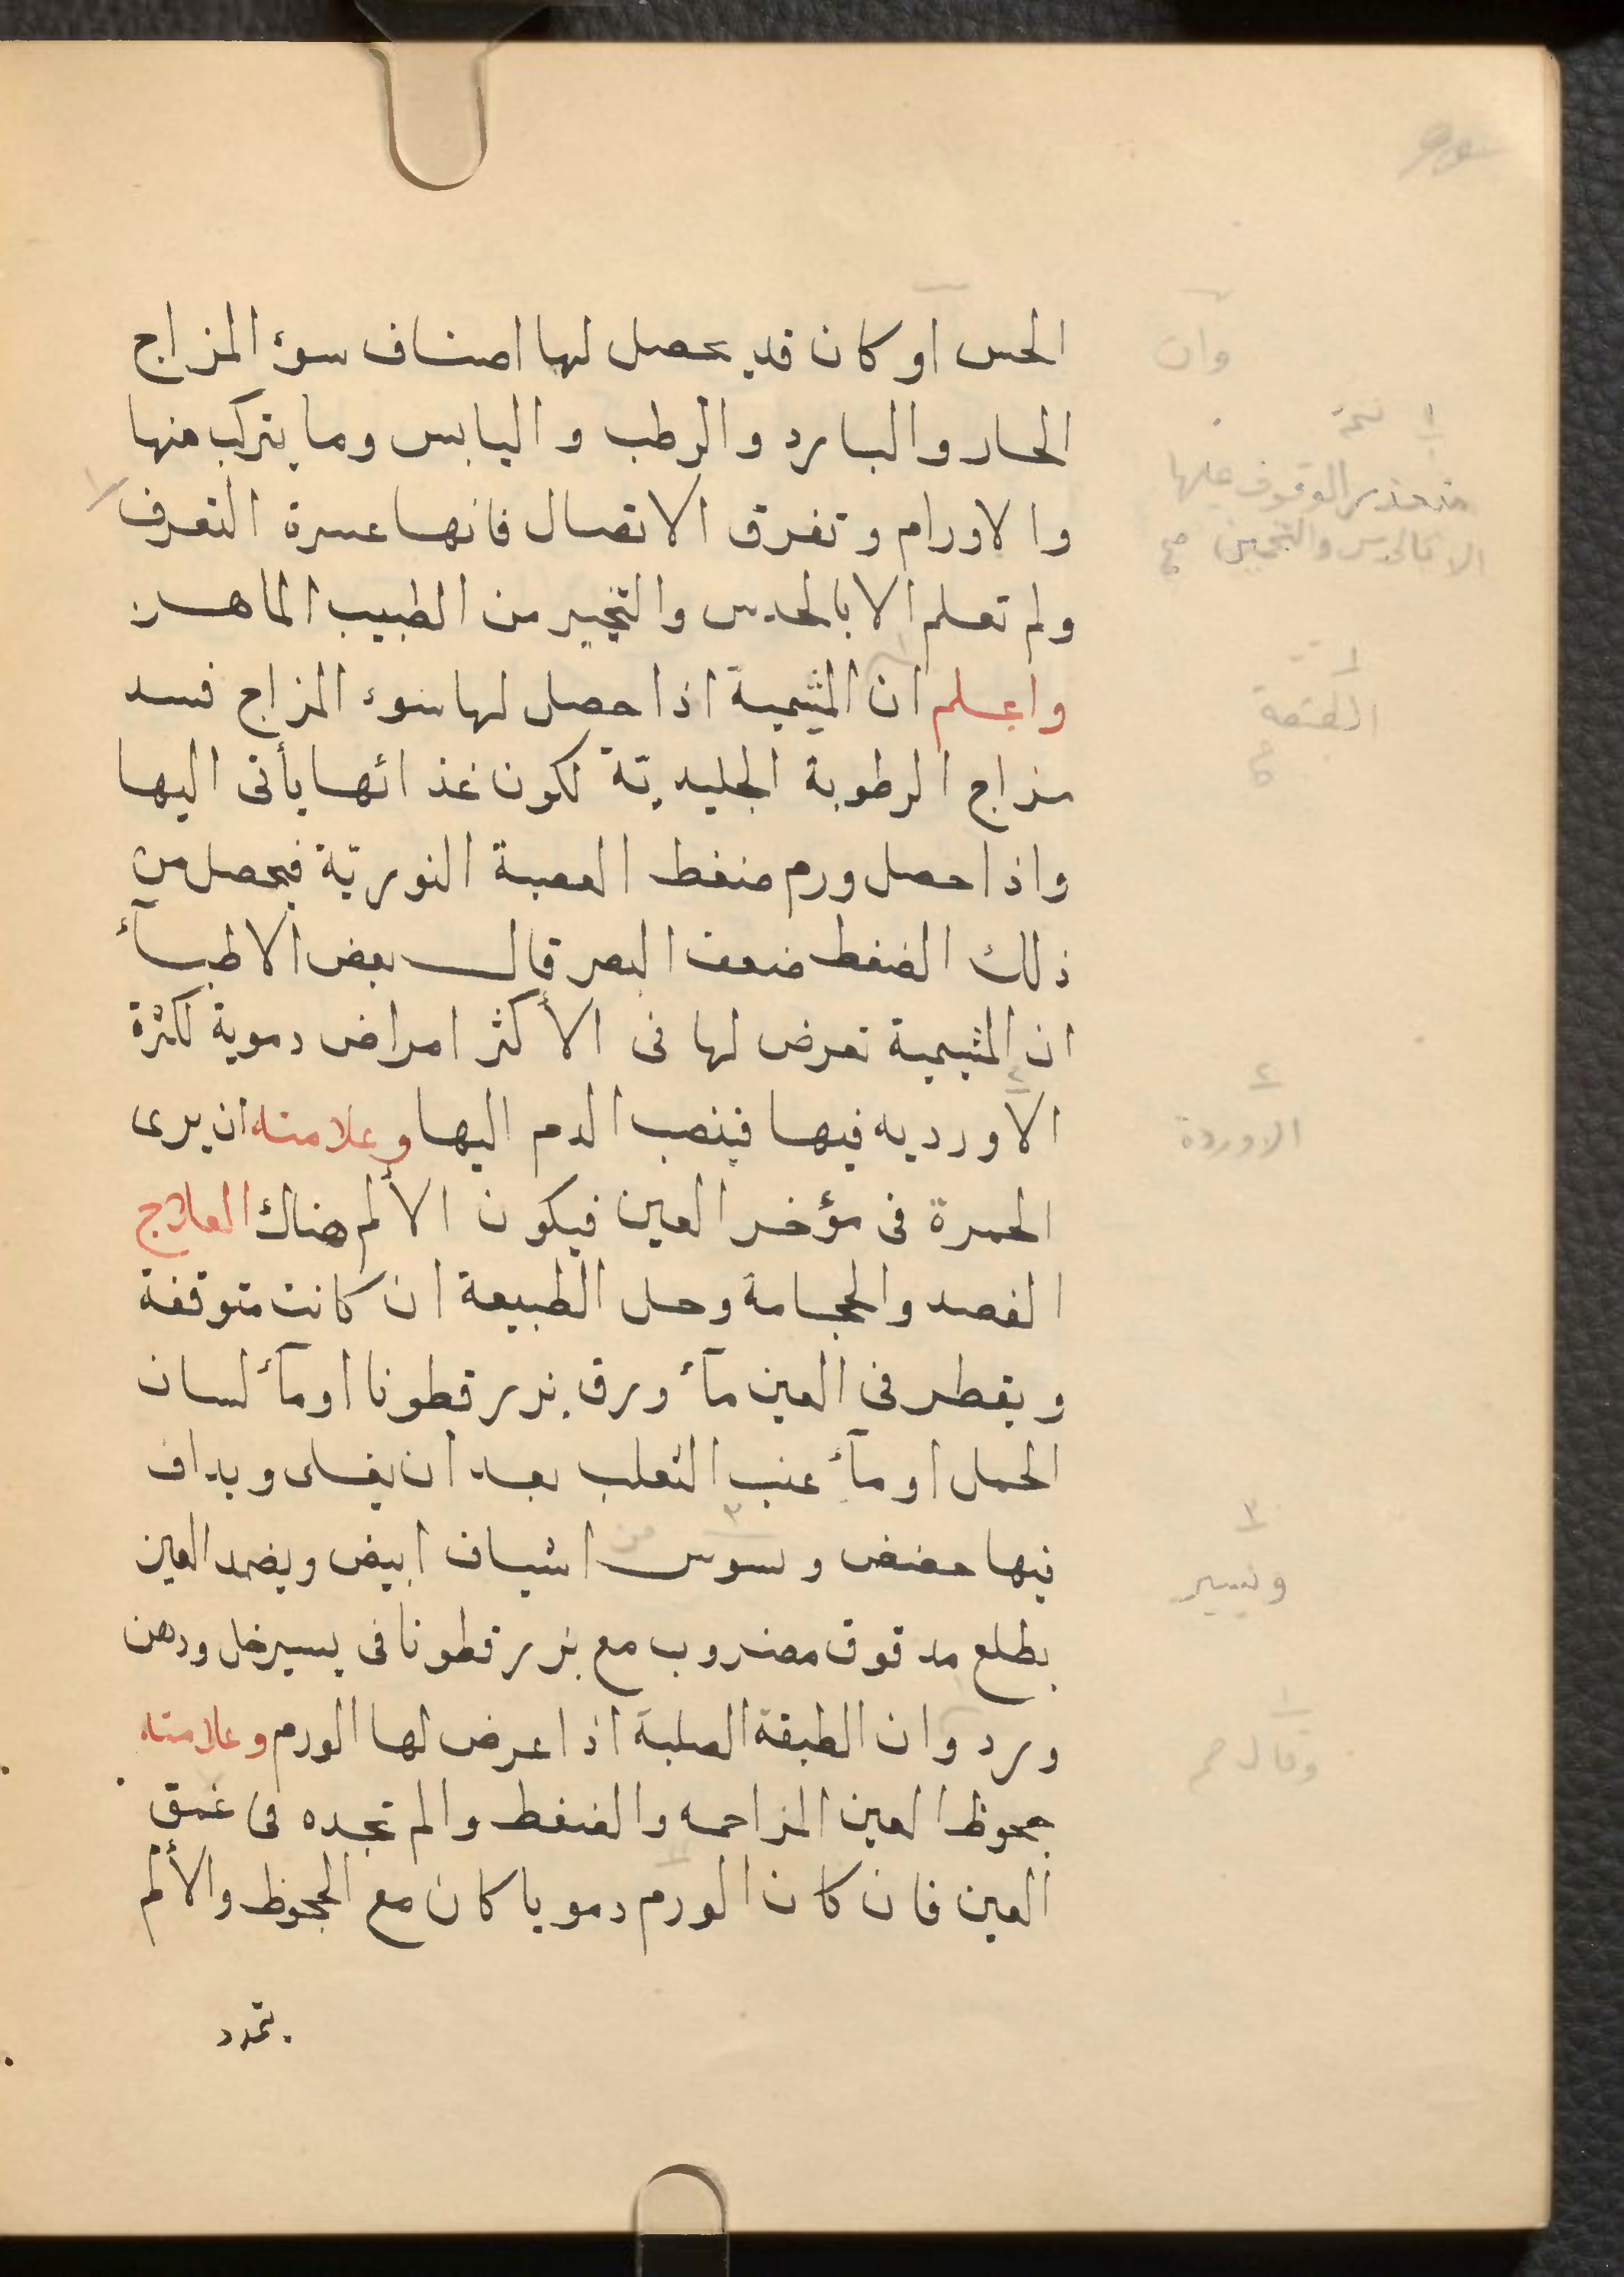 الحس او كان قد يحصل لها اصناف سوء المزاج
الحار والبارد والرطب واليابس وما يتركب منها
والاورام وتفرق الاتصال فانها عسرة التعرف
ولم تعلم الا بالحدس والتخبير من الطبيب الماهر
واعلم ان المشيمية اذا حصل لها سوء المزاج فسد
مزاج الرطوبة الجليدية لكون غذائها يأتى اليها
واذا حصل ورم ضغط العصبة النورية فيحصل من
ذلك الضغط ضعف البصر قال بعض الاطبآء
ان المشيمية تعرض لها فى الأكثر امراض دموية لكثرة
الأورديه فيها فينصب الدم اليها وعلامته ان يرى
الحمرة فى مؤخر العين فيكون الألم هناك العلاج
الفصد والحجامة وحل الطبيعة ان كانت متوقفة
ويقطر فى العين مآء ورق بزر قطونا او مآء لسان
الحمل او مآء عنب الثعلب بعد ان يغلى ويداف
فيها حضض وسوس اشياف ابيض ويضمد العين
بطلع مدقوق مضروب مع بزر قطونا فى يسير خل ودهن
ورد وان الطبقة الصلبة اذا عرض لها الورم وعلامته
جحوظ العين المزاحمه والضغط والم تجده فى عمق
العين فان كان الورم دمويا كان مع الجحوظ والألم
تمدد
وان
١
متعذر الوقوف عليها
الا بالحدس والتخمين صح
١
الطبقة
٢
الاوردة
٣
ويسير
١
وقال